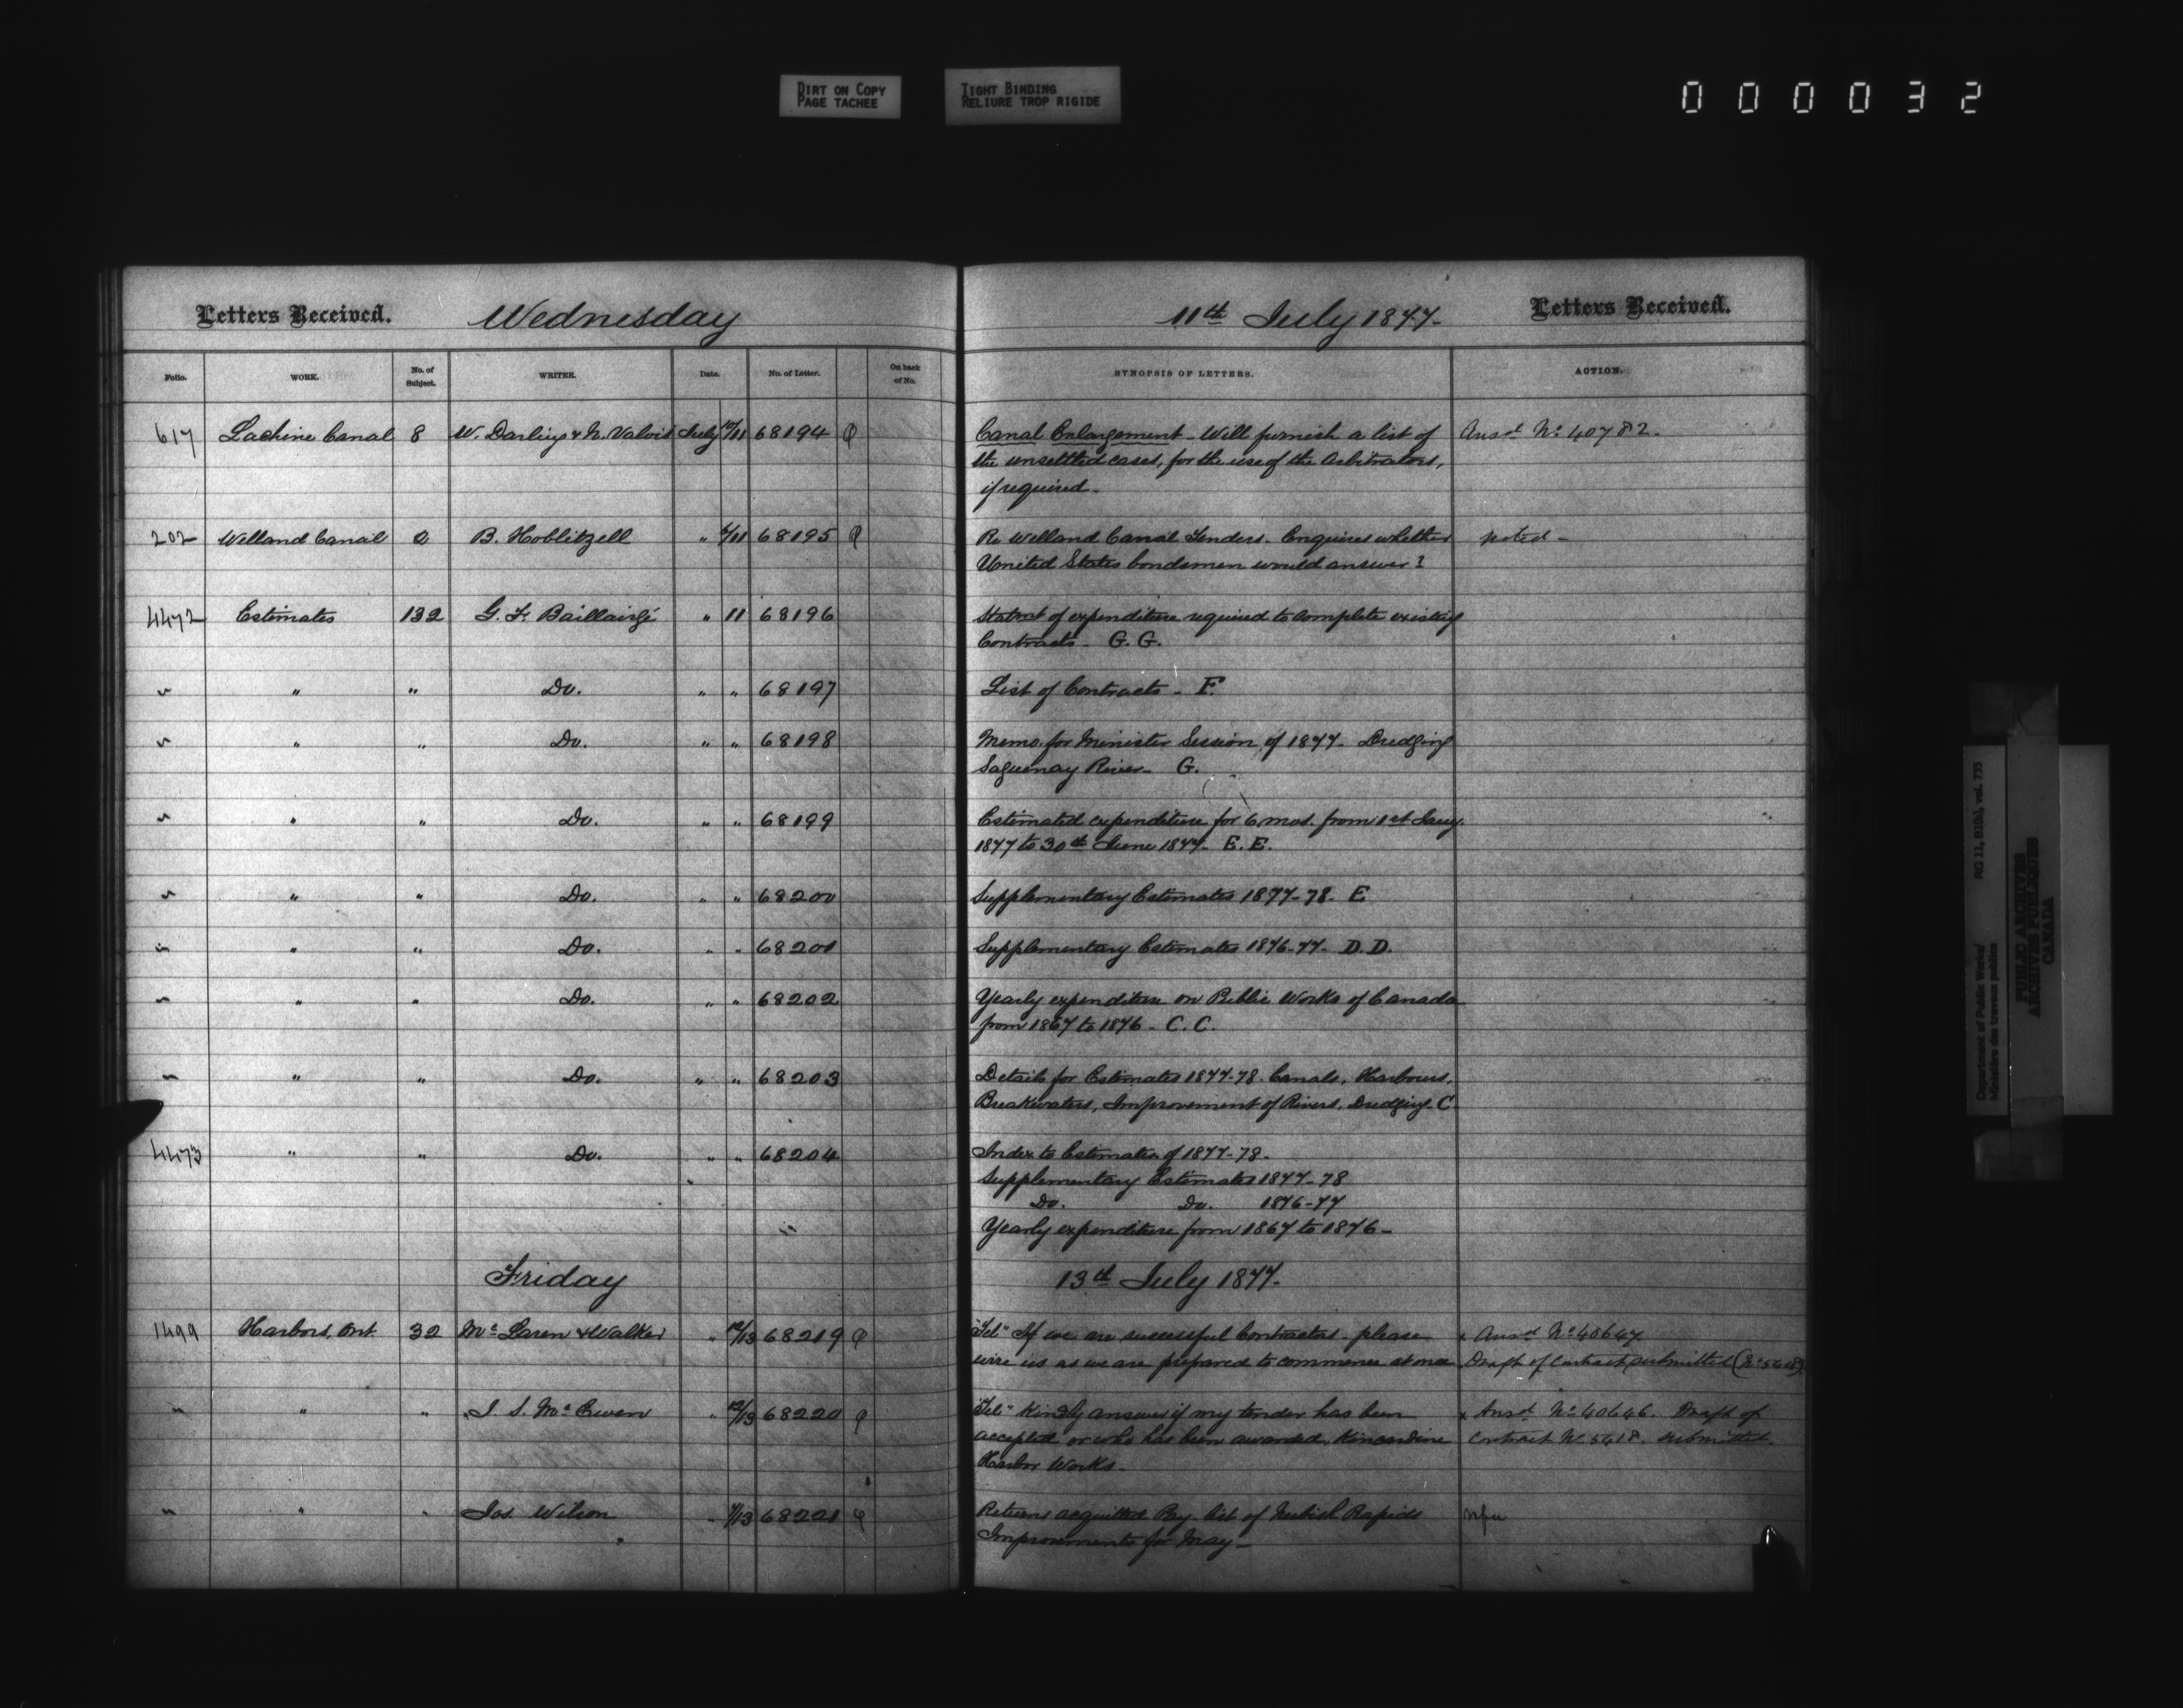 DIRT ON COPY
PAGE TACHEE
TIGHT BINDING
RELIURE TROP RIGIDE
000032
Letters Received. Wednesday 11th July 1877- Letters Received.
Folio. WORK. No. of Subject. WRITER. Date. No. of Letter. On back of No. SYNOPSIS OF LETTERS. ACTION.
617 Lachine Canal 8 W. Darling & N. Valois July 10/11 68194 Canal Enlargement - Will furnish a list of Ansd No 40782-
the unsettled cases, for the use of the Arbitrators,
if required-
202 Welland Canal 2 B. Hoblitzell " /11 68195 Re Welland Canal Tenders. Enquires whether noted-
United States bondsmen would answer?
4472 Estimates 132 G. F. Baillairgé " 11 68196 Statmt of expenditure required to complete existing
Contracts- G. G.
" " " Do. " " 68197 List of Contracts- F.
" " " Do. " " 68198 Memo. for Minister Session of 1877- Dredging
Saguenay River- G.
" " " Do. " " 68199 Estimated expenditure for 6 mos. from 1st Jany.
1877 to 30th June 1877- E. E.
" " " Do. " " 68200 Supplementary Estimates 1877-78- E
" " " Do. " " 68201 Supplementary Estimates 1876-77- D. D.
" " " Do. " " 68202 Yearly expenditure on Public Works of Canada
from 1867 to 1876- C. C.
" " " Do. " " 68203 Details for Estimates 1877-78. Canals, Harbours,
Breakwaters, Improvement of Rivers, Dredging- C
4473 " " Do. " " 68204 Index to Estimates of 1877-78-
Supplementary Estimates 1877-78
Do. Do. 1876-77
Yearly expenditure from 1867 to 1876-
Friday 13th July 1877-
1499 Harbors, Ont. 32 Mc Laren & Walker " 12/13 68219 "Tel" If we are successful Contractors- please x Ansd No 40647.
wire us as we are prepared to commence at once Draft of Contract submitted (No 5618)
" " " J. S. Mc Ewen " 12/13 68220 "Tel" Kindly answer if my tender has been x Ansd No 40646. Draft of
accepted or who has been awarded, Kincardine Contract No 5618. submitted.
Harbor Works-
" " " Jos Wilson " /13 68221 Returns acquitted Pay list of Neebish Rapids
Improvements for May-
Department of Public Works/ RG 11, B1(b), vol. 735
Ministère des travaux publics
PUBLIC ARCHIVES
ARCHIVES PUBLIQUES
CANADA